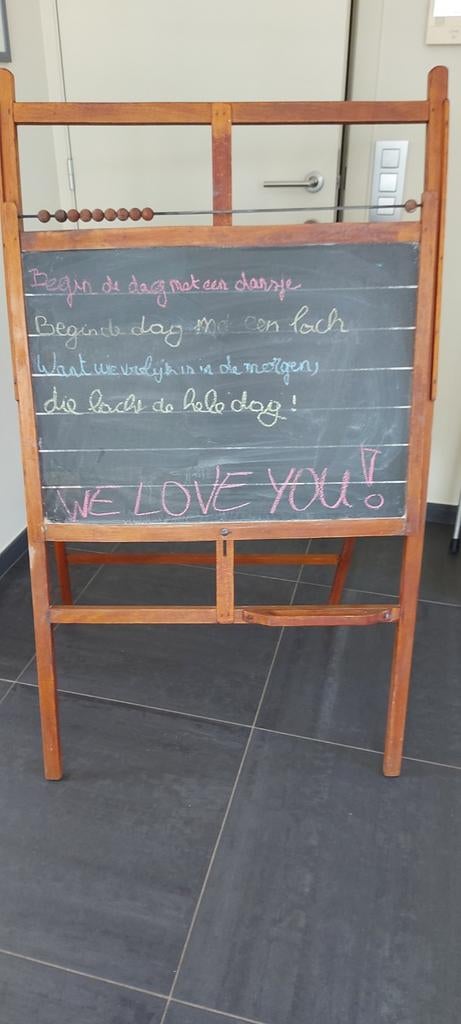 Begin de dag met een dansje
Begin de dag me een lach
Want wie vrolijk is in de morgen,
die lacht de hele dag!
WE LOVE YOU!